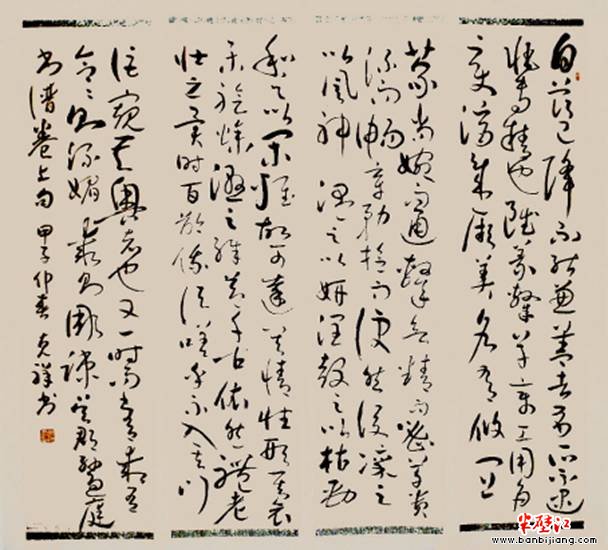 自茲已降不能兼善者有所不逮
非專精也雖篆隸草章工用多
變濟成厥美各有攸宜
篆尚婉而通隸欲精而密草貴
流而暢章務檢而便然後凜之
以風神溫之以妍潤鼓之以枯勁
和之以閑雅故可達其情性形其哀
樂驗燥濕之殊節千古依然體老
壯之異時百齡俄頃嗟乎不入其門
詎窺其奧者也又一時而書有乖有
合〻則流媚乖則雕疏
书譜卷上句 甲子仲春 克祥书
半壁江
www.banbijiang.com